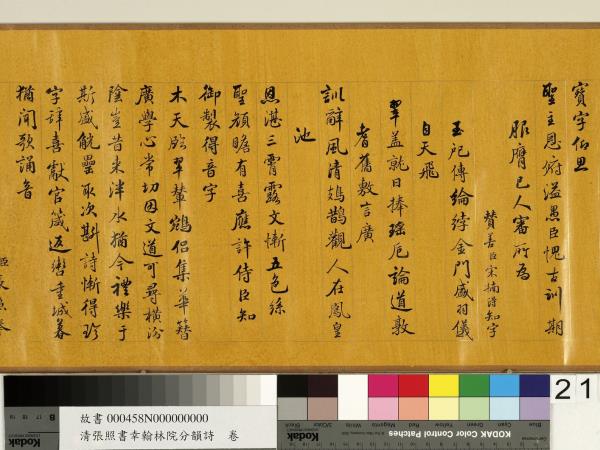 寶字仰思
聖主恩俯溢愚臣愧古訓期
服膺已人審所為
贊善臣宋楠得知字
玉卮傳綸綍金門盛羽儀
自天飛
翠蓋就日捧瑤卮論道敦
耆舊敷言廣
訓辭風清鳷鵲觀人在鳳皇
池
恩湛三霄露文漸五色絲
聖顏瞻有喜應許侍臣知
御製得音字
木天臨翠輦鵷侶集華簪
廣學心常切因文道可尋橫汾
陰豈昔米泮水猶今禮樂于
斯盛觥罍取次斟詩慚得
字辭喜獻官箴返轡重城暮
猶聞歌誦音
21
故書 000458N000000000
清張照書幸翰林院分韻詩 卷
Kodak
KODAK Color Control Patches
Blue
Cyan
Green
Yellow
Red
Magenta
White
3/Color
Black